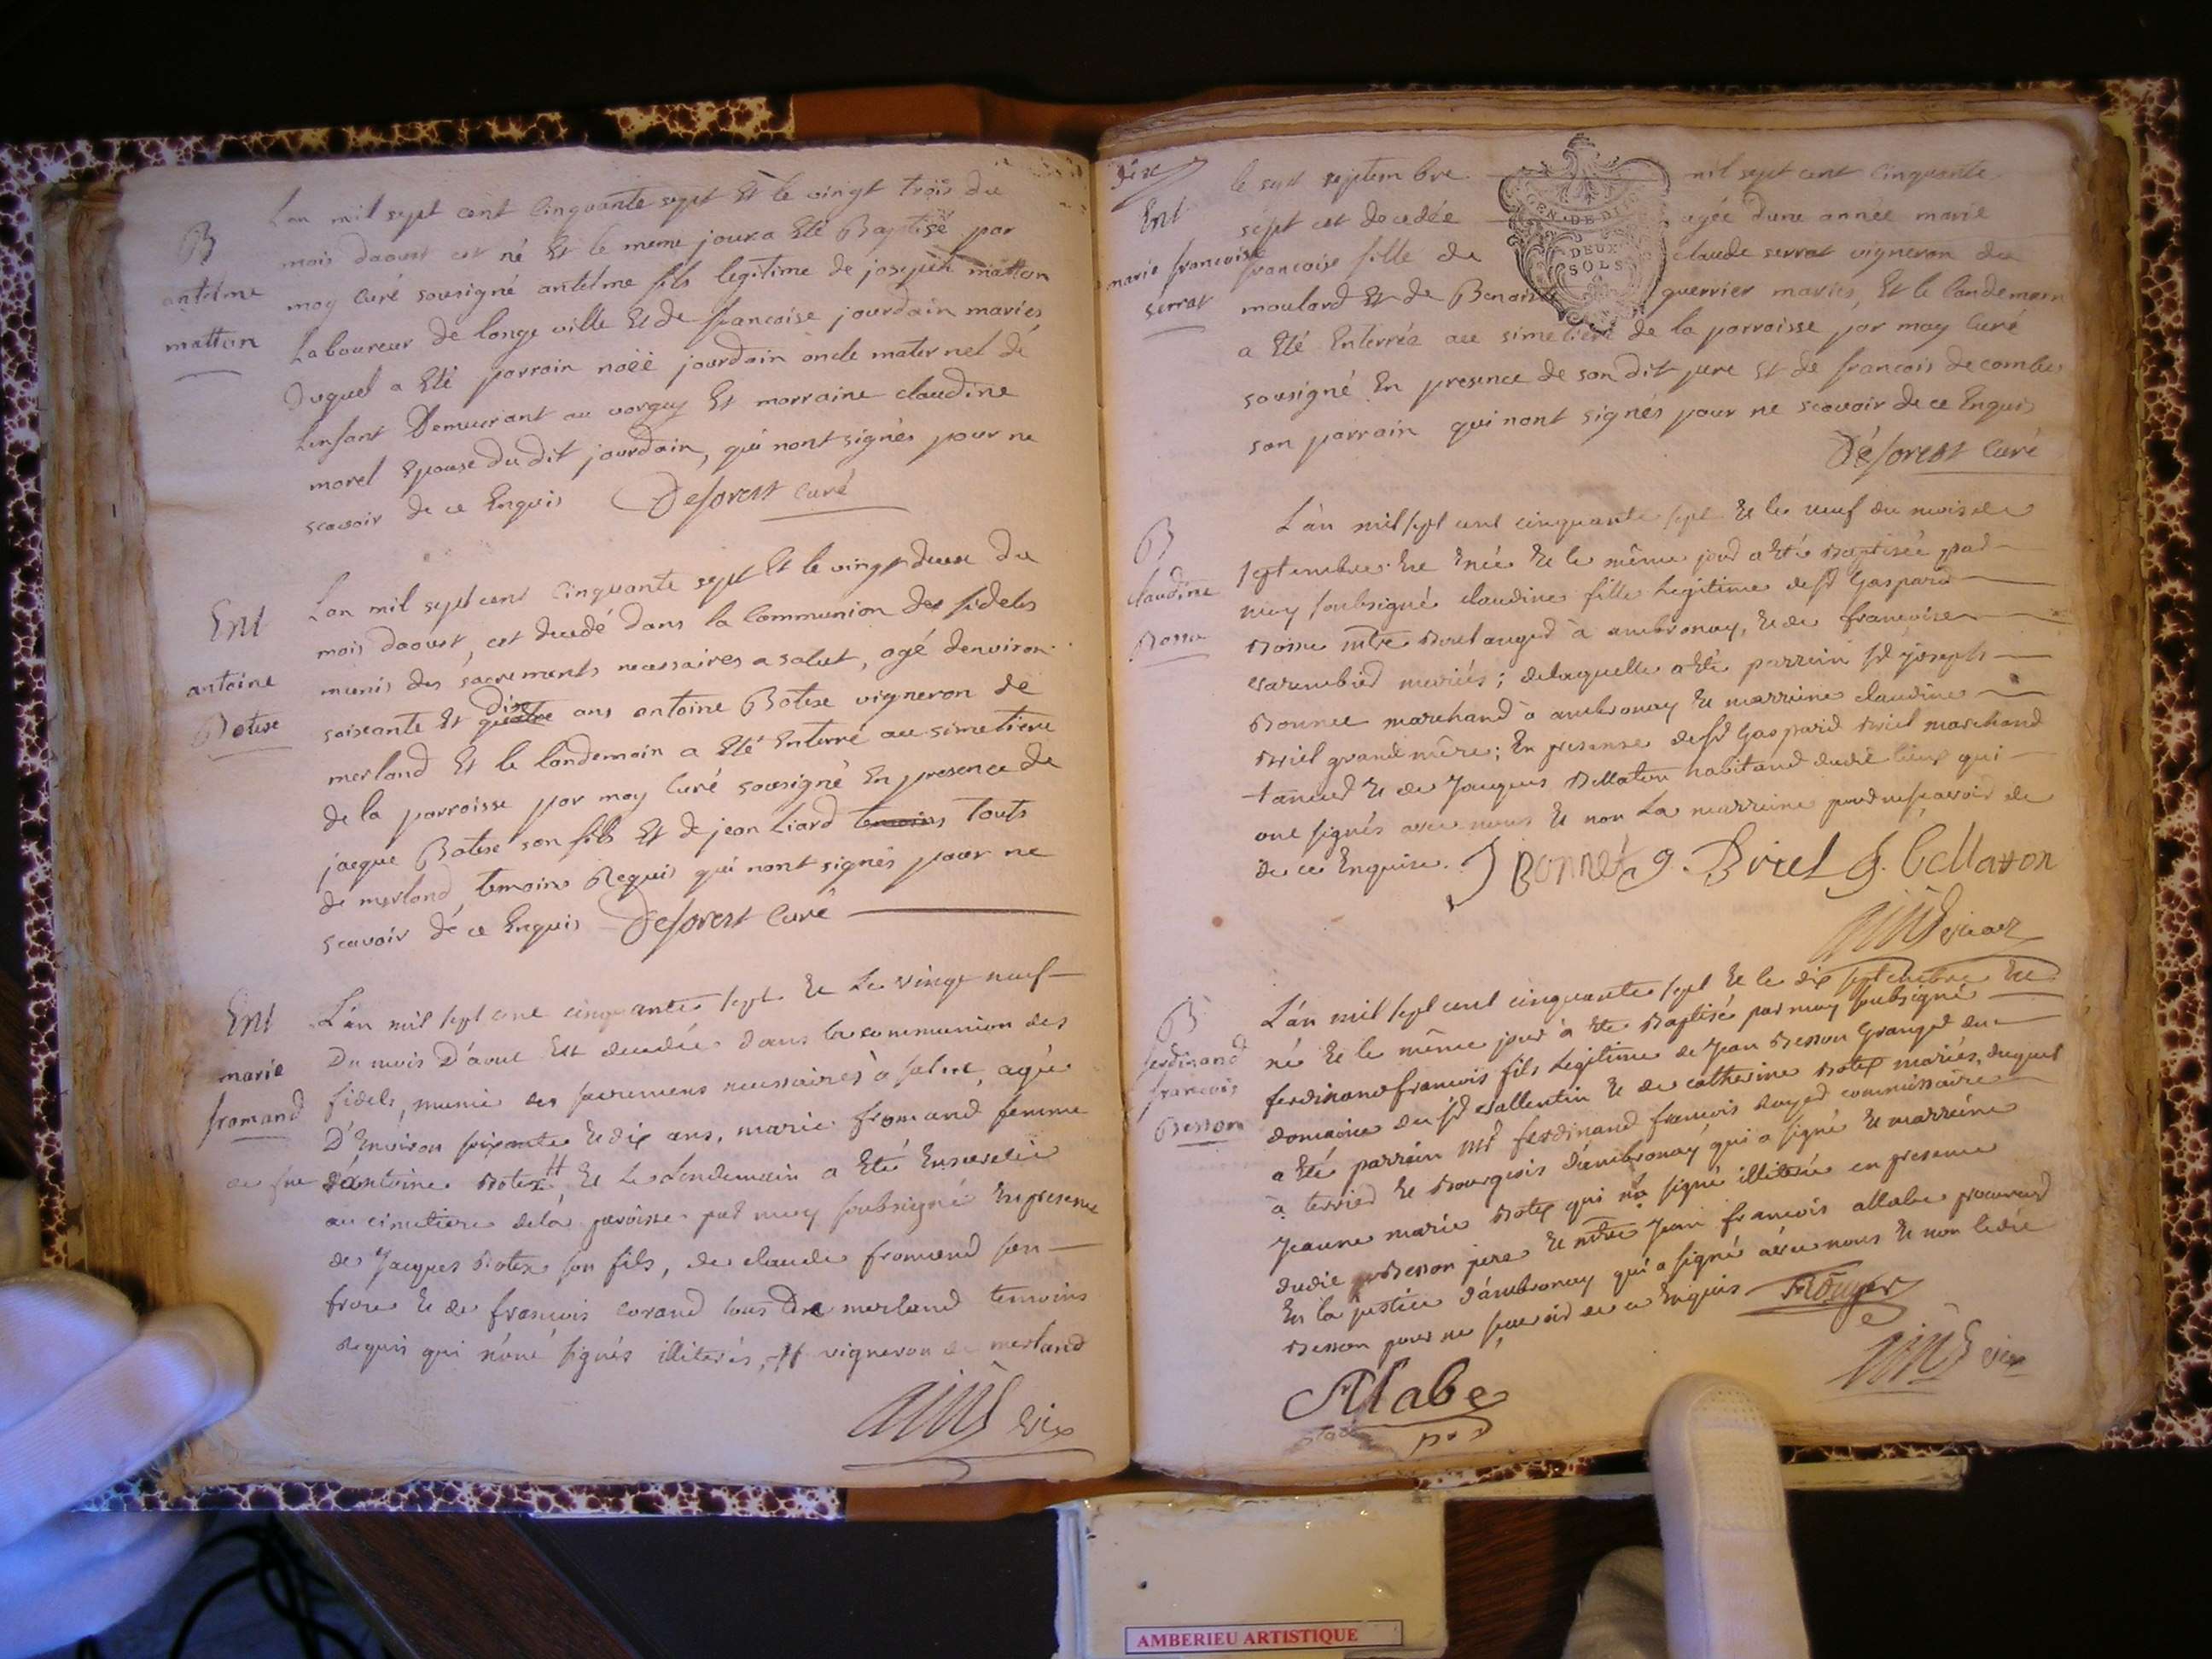 B
antelme
matton
Lan mil sept cent Cinquante sept Et le vingt trois du
mois daoust est né Et le meme jour a Eté Baptisé par
moy Curé sousigné antelme fils legitime de joseph matton
Laboureur de longe ville Et de francoise jourdain mariés
duquel a Eté parrain noëë jourdain oncle maternel de
Lenfant Demeurant au vorgey Et marraine claudine
morel Epouse du dit jourdain, qui nont signés pour ne
scavoir de ce Enquis Deforest Curé
Ent
antoine
Botex
Lan mil sept cent Cinquante sept Et le vingt deux du
mois daoust, est decedé dans la Communion des fideles
munis des sacrements necessaires a salut, agé denviron
soixante Et quatre dix ans antoine Botex vigneron de
merland Et le landemain a Eté Enterré au simetiere
de la parroisse par moy Curé sousigné En presence de
jacque Botex son fils Et de jean Liard temoins touts
de merland, temoins Requis qui nont signés pour ne
scavoir dé ce Enquis Deforest Curé
Ent
marie
fromand
L'an mil sept cent cinquante sept Et Le vingt neuf
Du mois D'aout Est decedée dans la communion des
fideles, munie des sacremens necessaires à salut, agée
D'Environ soixante Et dix ans, marie fromand femme
d'antoine Botex # Et Le Lendemain a Eté Ensevelie
au cimetiere dela paroisse par moy soubsigné En presence
de Jacques Botex son fils, de claude fromand son
frere Et de francois corand tous De merland temoins
Requis qui n'ont signés illiterés, # vigneron de merland
dix
Ent
marie francoise
serrat
le sept septembre mil sept cent Cinquante
sept est decedée agée dune année marie
francoise fille de claude serrat vigneron du
moulard Et de Benoite guerrier mariés, Et le landemain
a Eté Enterrée au simetiere de la parroisse par moy Curé
sousigné En presence de son dit pere Et de francois decombes
son parrain qui nont signés pour ne scavoir de ce Enquis
Déforest Curé
GEN · DE DIJON
DEUX
SOLS
B
claudine
Bosse
L'an mil sept cent cinquante sept Et le neuf du mois de
septembre Est née Et le même jour a Eté Baptisée par
moy soubsigné claudine fille Legitime de sr Gaspard
Bosse mtre Boulanger à ambronay, Et de francoise
mariés; delaquelle a Eté parrein sr joseph
Bonnet marchand à ambronay Et marreine claudine
Briel grand mère; En presence de sr Gaspard Briel marchand
tanneur Et de Jacques Bellaton habitand dudit lieux qui
ont signés avec nous Et non La marreine pour ne sçavoir de
de ce Enquise. J Bonnet g. Briel J. bellaton
vicar
B
ferdinand
francois
Besson
L'an mil sept cent cinquante sept Et le dix septembre Est
né Et le même jour à Eté Baptisé par moy soubsigné
ferdinand francois fils Legitime de Jean Besson Granger du
domaine du sr vallentin Et de catherine Botex mariés, duquel
a Eté parrein Mr ferdinand francois Royer commissaire
à terrier Et Bourgeois d'ambronay qui a signé Et marreine
Jeanne marie Botex qui n'a signé illiterée en presence
dudit Besson pere Et mtre Jean francois allabe procureur
En la justice d'ambronay qui a signé avec nous Et non ledit
Besson pour ne sçavoir de ce Enquis Röuyer
Allabe
AMBERIEU ARTISTIQUE